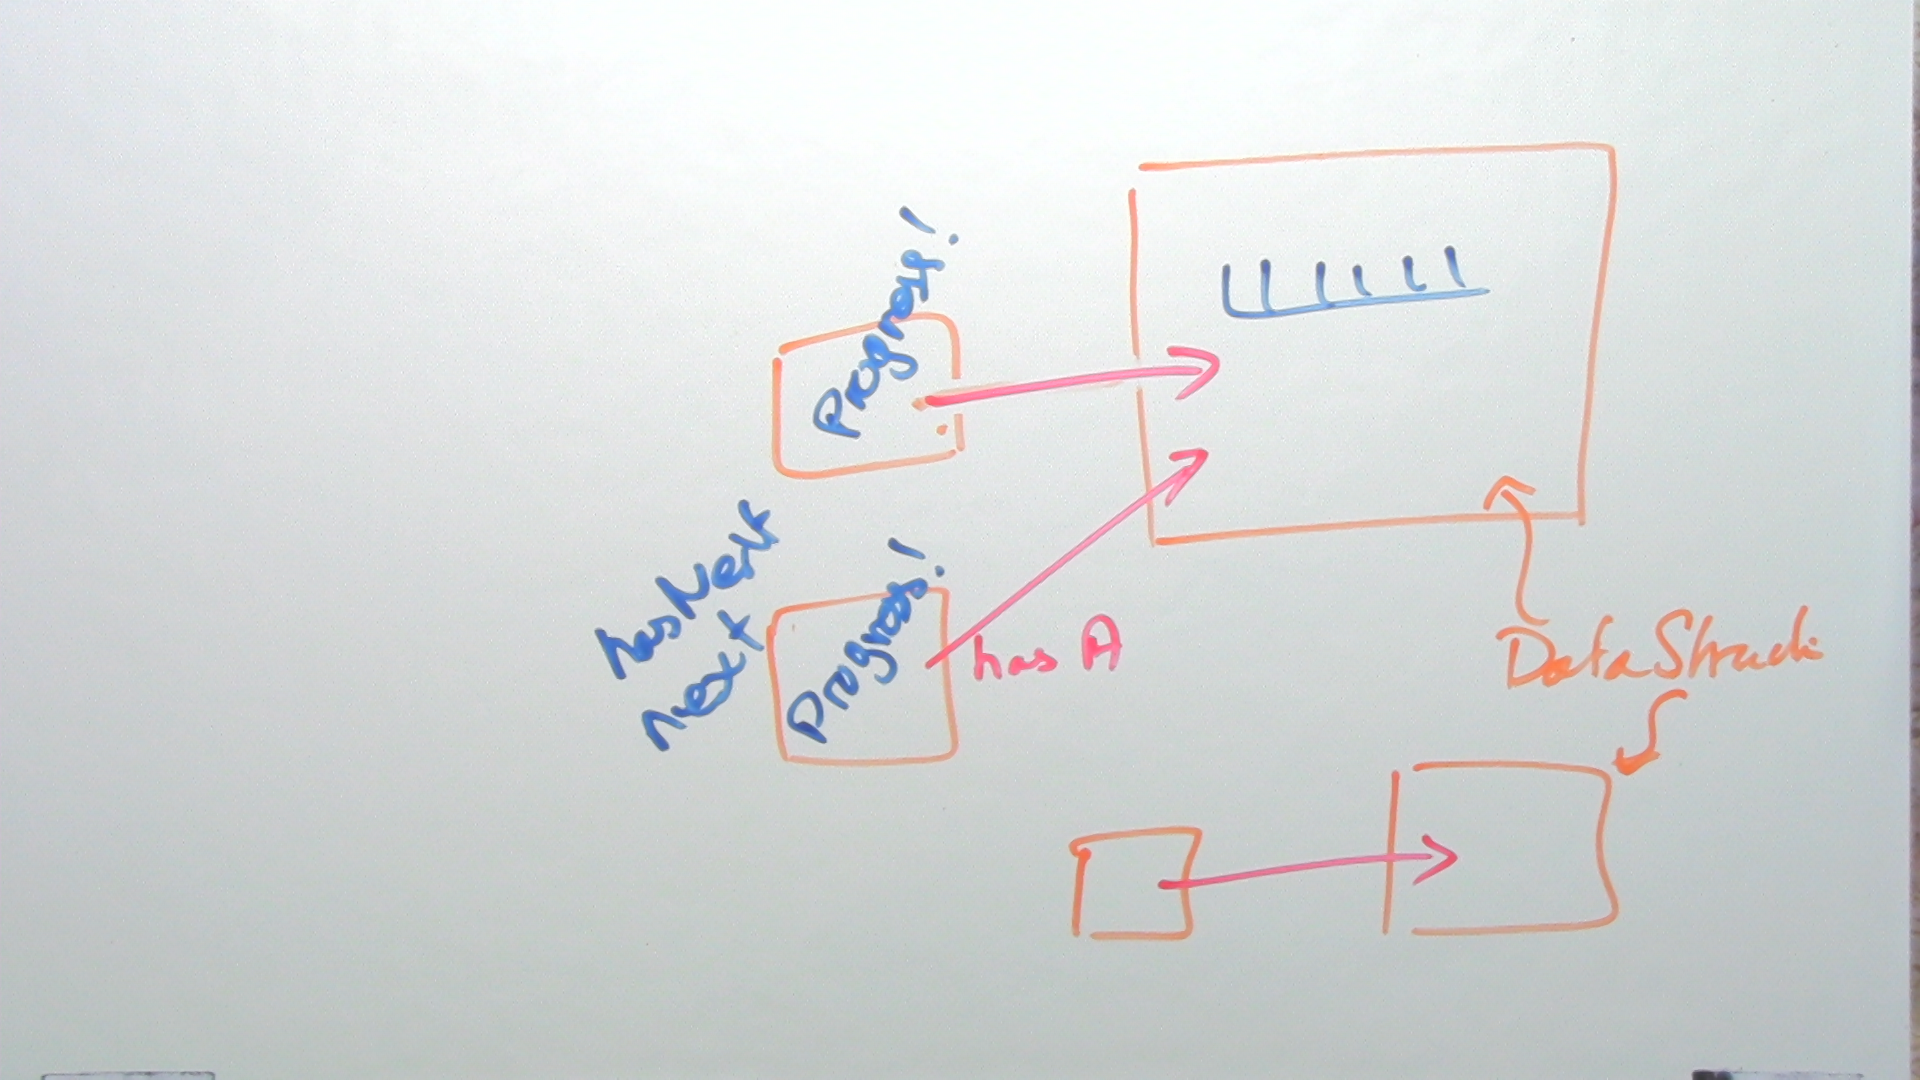 Progress!
hasNext
next
Progress!
has A
DataStructi